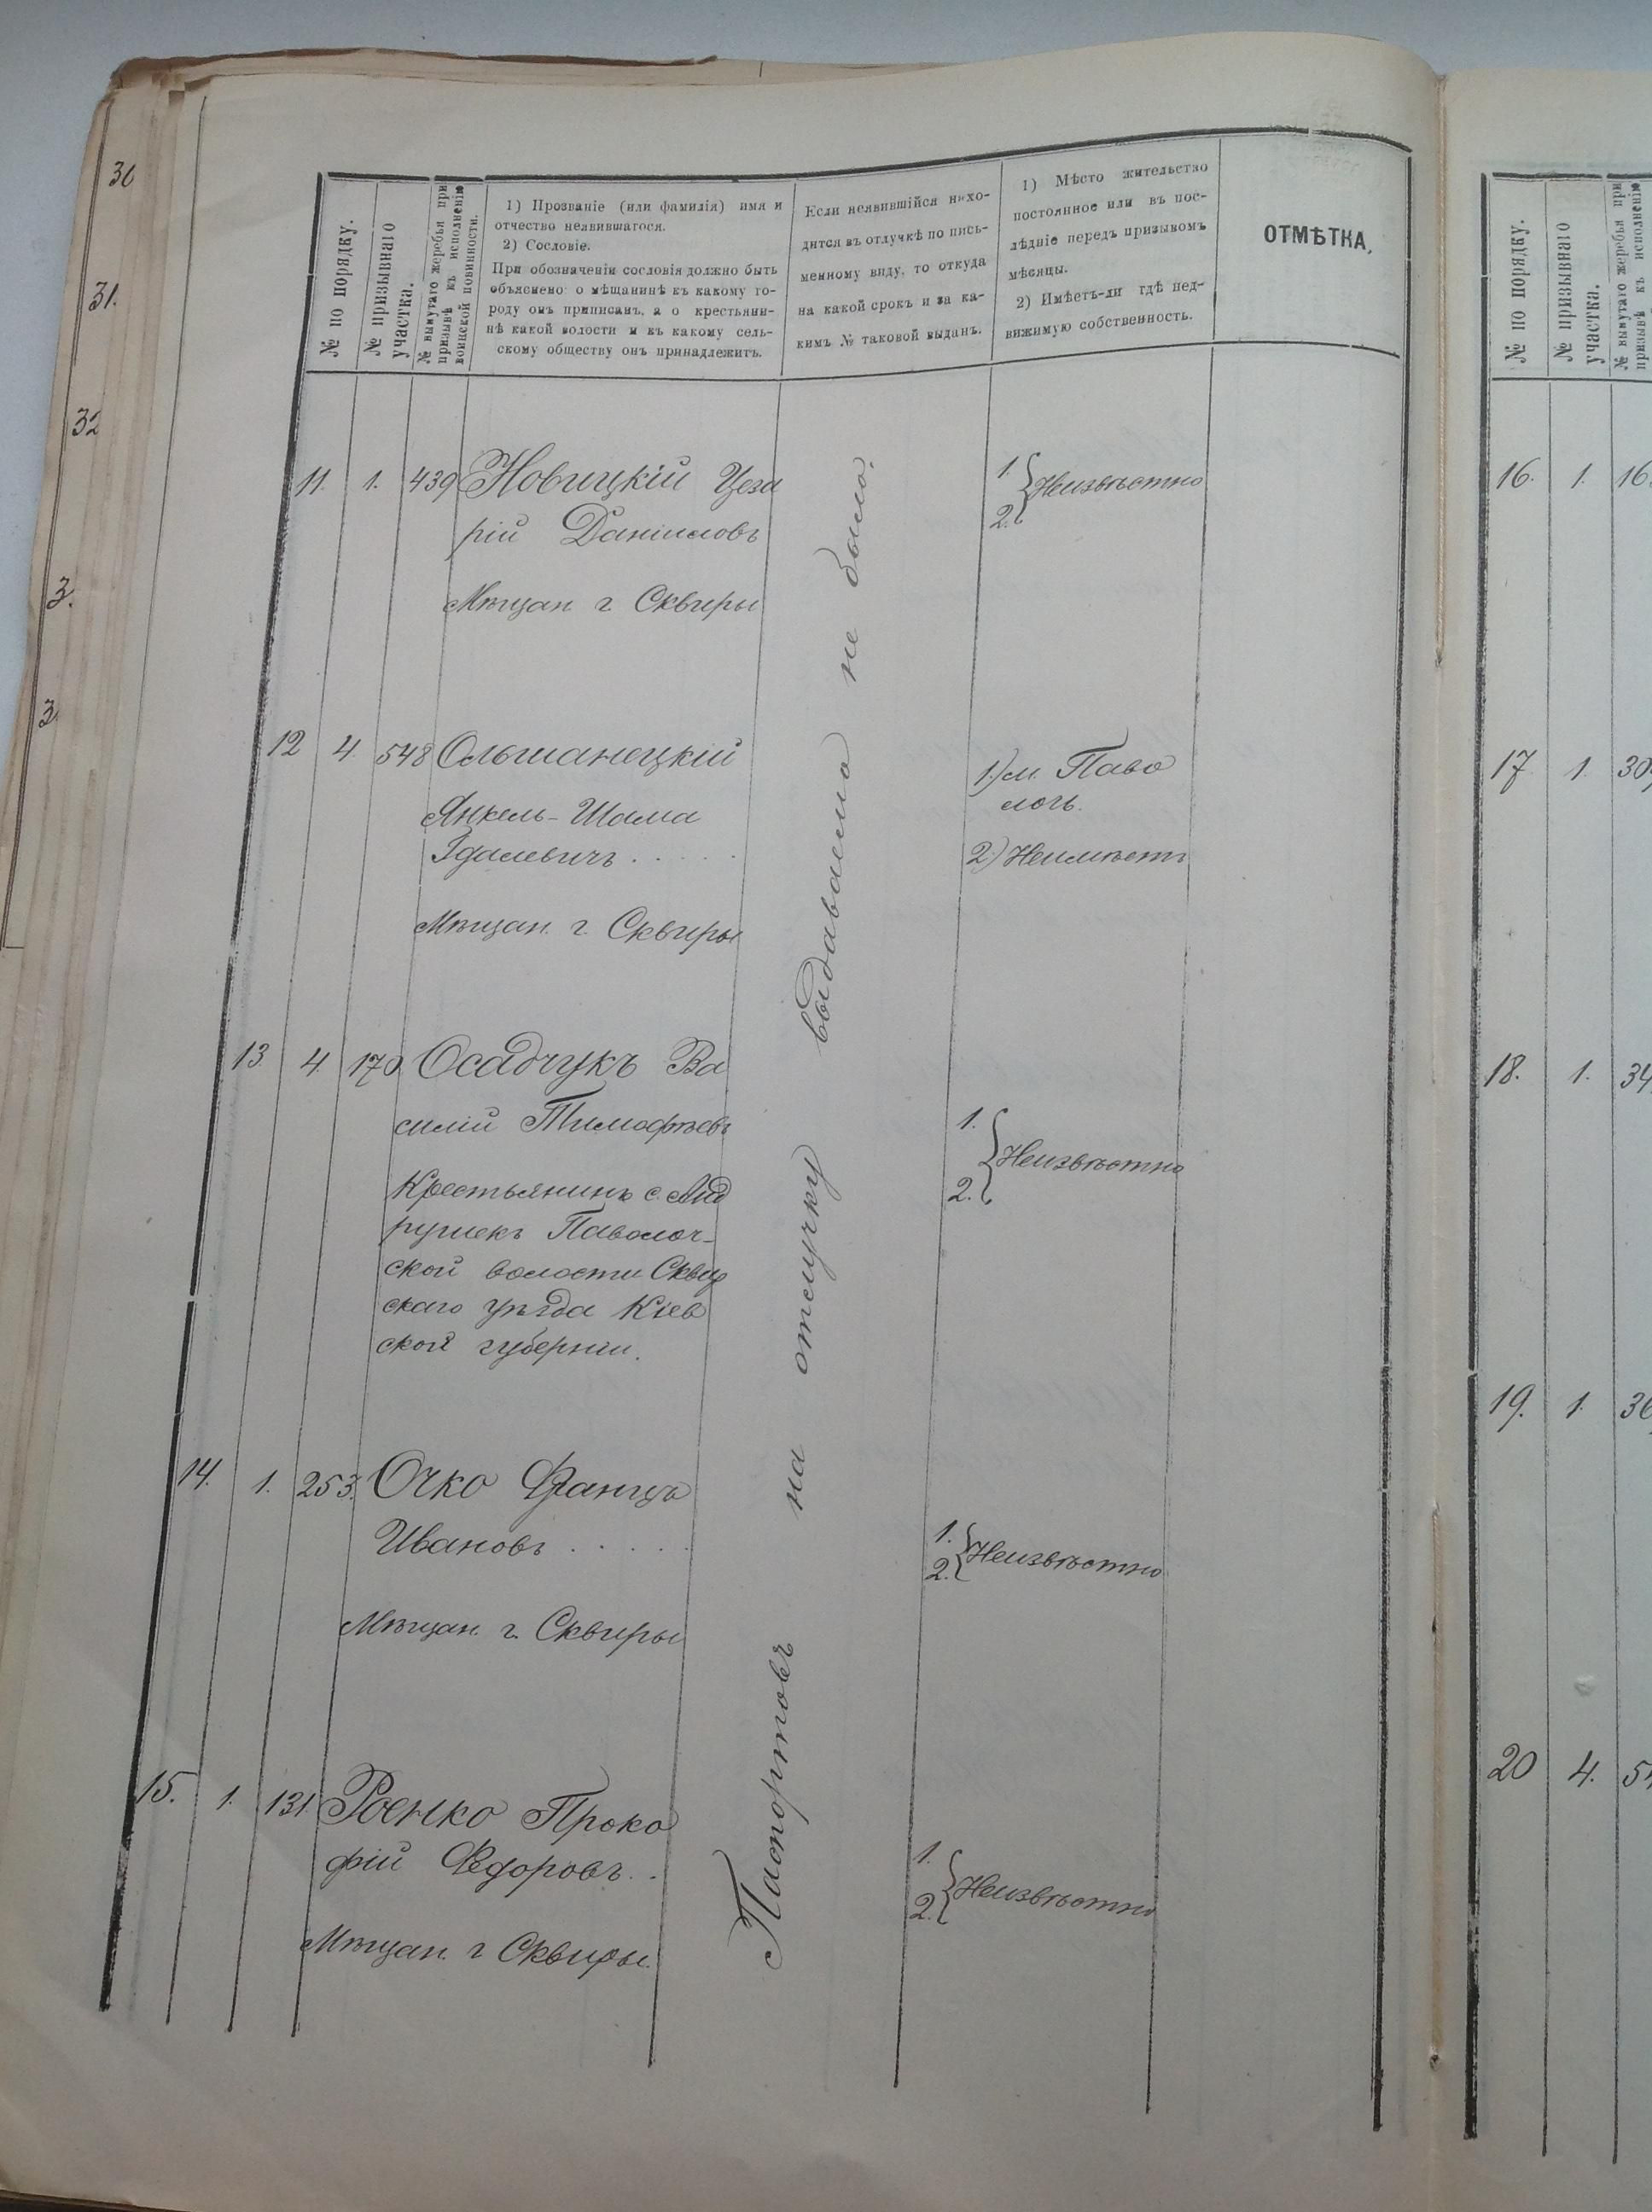 30
31.
32
3.
3.
№ по порядку.
№ призывнаго
участка.
№ вынутаго жеребья при
призывѣ къ исполненію
воинской повинности.
1) Прозваніе (или фамилія) имя и
отчество неявившагося.
2) Сословіе.
При обозначеніи сословія должно быть
объяснено: о мѣщанинѣ къ какому го-
роду онъ приписанъ, а о крестьяни-
нѣ какой волости и къ какому сель-
скому обществу онъ принадлежитъ.
Если неявившійся нахо-
дится въ отлучкѣ по пись-
менному виду, то откуда
на какой срокъ и за ка-
кимъ № таковой выданъ.
1) Мѣсто жительство
постоянное или въ пос-
лѣдніе передъ призывомъ
мѣсяцы.
2) Имѣетъ-ли гдѣ нед-
вижимую собственность.
ОТМѢТКА.
11. 1. 439 Новицкій Цеза
рій Даніиловъ
Мѣщан. г. Сквиры
1.
2. } Неизвѣстно
12 4. 548 Ольшанецкій
Янкель-Шама
Гдалевичъ . . . . .
Мѣщан. г. Сквиры
1.) м. Паво
лочь.
2.) Неимѣетъ
13. 4. 170 Осадчукъ Ва
силій Тимофѣевъ
Крестьянинъ с. Анд
рушекъ Паволоч-
ской волости Сквир
скаго уѣзда Кіев
ской губерніи.
1.
2. } Неизвѣстно
14. 1. 253. Очко Францъ
Ивановъ . . . . .
Мѣщан. г. Сквиры
1.
2. } Неизвѣстно
15. 1. 131. Роенко Проко
фій Федоровъ . .
Мѣщан. г Сквиры.
1.
2. } Неизвѣстно
Паспортовъ на отлучку выдаваемо не было.
№ по порядку.
№ призывнаго
участка.
№ вынутаго жеребья при
призывѣ къ исполненію
16. 1. 16
17 1. 30
18. 1. 34
19. 1. 36
20 4. 5